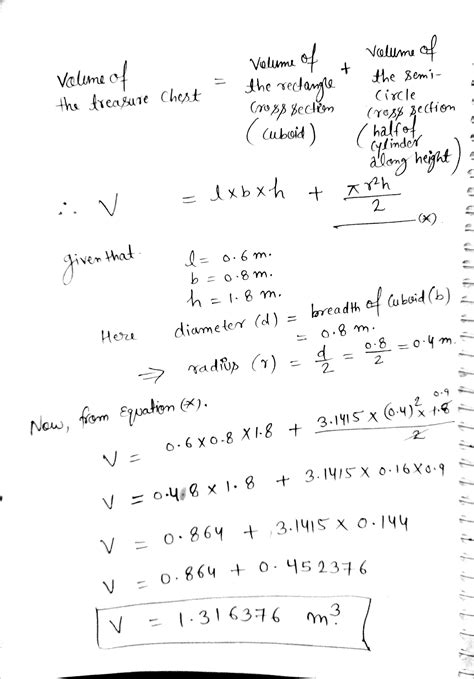 Volume of the treasure chest = Volume of the rectangle cross section (cuboid) + Volume of the semi-circle cross section (half of cylinder along height)
∴ V = l x b x h + πr²h / 2 —(x).
Given that.
l = 0.6 m.
b = 0.8 m.
h = 1.8 m.
Here diameter (d) = breadth of cuboid (b)
= 0.8 m.
⇒ radius (r) = d/2 = 0.8/2 = 0.4 m.
Now, from Equation (x).
V = 0.6 x 0.8 x 1.8 + 3.1415 x (0.4)² x 1.8 0.9 / 2
V = 0.48 x 1.8 + 3.1415 x 0.16 x 0.9
V = 0.864 + 3.1415 x 0.144
V = 0.864 + 0.452376
V = 1.316376 m³.